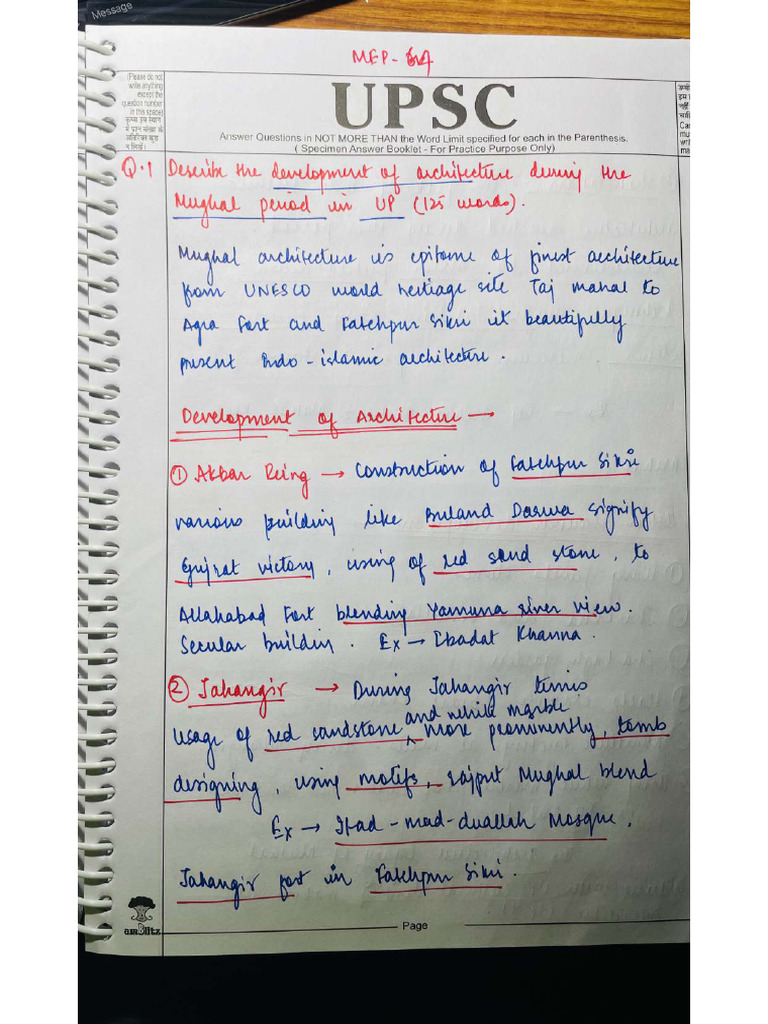 Message
MEP-
(Please do not
write anything
except the
question number
in this space)
UPSC
Answer Questions in NOT MORE THAN the Word Limit specified for each in the Parenthesis.
( Specimen Answer Booklet - For Practice Purpose Only)
Q.1 Describe the development of architecture during the
Mughal period in UP (125 words).
Mughal architecture is epitome of finest architecture
from UNESCO world heritage site Taj mahal to
Agra Fort and Fatehpur Sikri it beautifully
present Indo-islamic architecture.
Development of Architecture →
① Akbar Reing → Construction of Fatehpur Sikri
various building like Buland Darwa signify
Gujrat victory, using of red sand stone, to
Allahabad Fort blending Yamuna river view.
Secular building. Ex → Ibadat Khanna.
② Jahangir → During Jahangir
and white marble
Usage of red sandstone ^ more prominently, tomb
designing, using motifs, rajput Mughal blend
Ex → Itad-mad-duallah Mosque.
Jahangir fort in Fatehpur Sikri.
Page